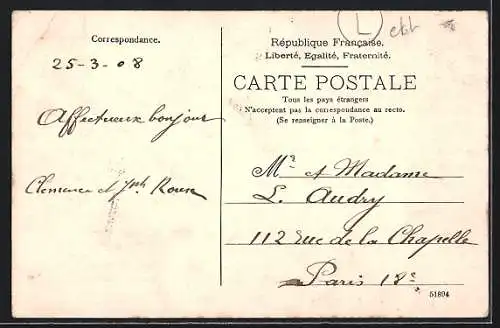 Correspondance.
25-3-08
Affectueux bonjour
Clemence et Jph Roux
L
République Française.
Liberté, Egalité, Fraternité.
CARTE POSTALE
Tous les pays étrangers
N'acceptent pas la correspondance au recto.
(Se renseigner à la Poste.)
Mr et Madame
L. Audry
112 rue de la Chapelle
Paris 18e
51894